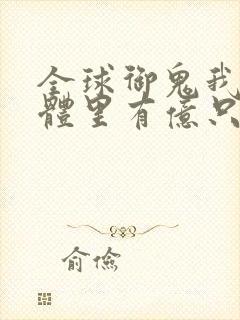 全球御鬼我
體里有億只
俞儉